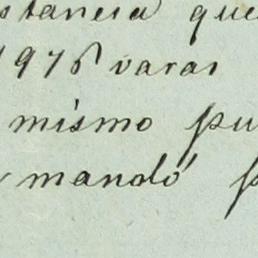 stancia que
1975 varas
mismo pu
mandó p